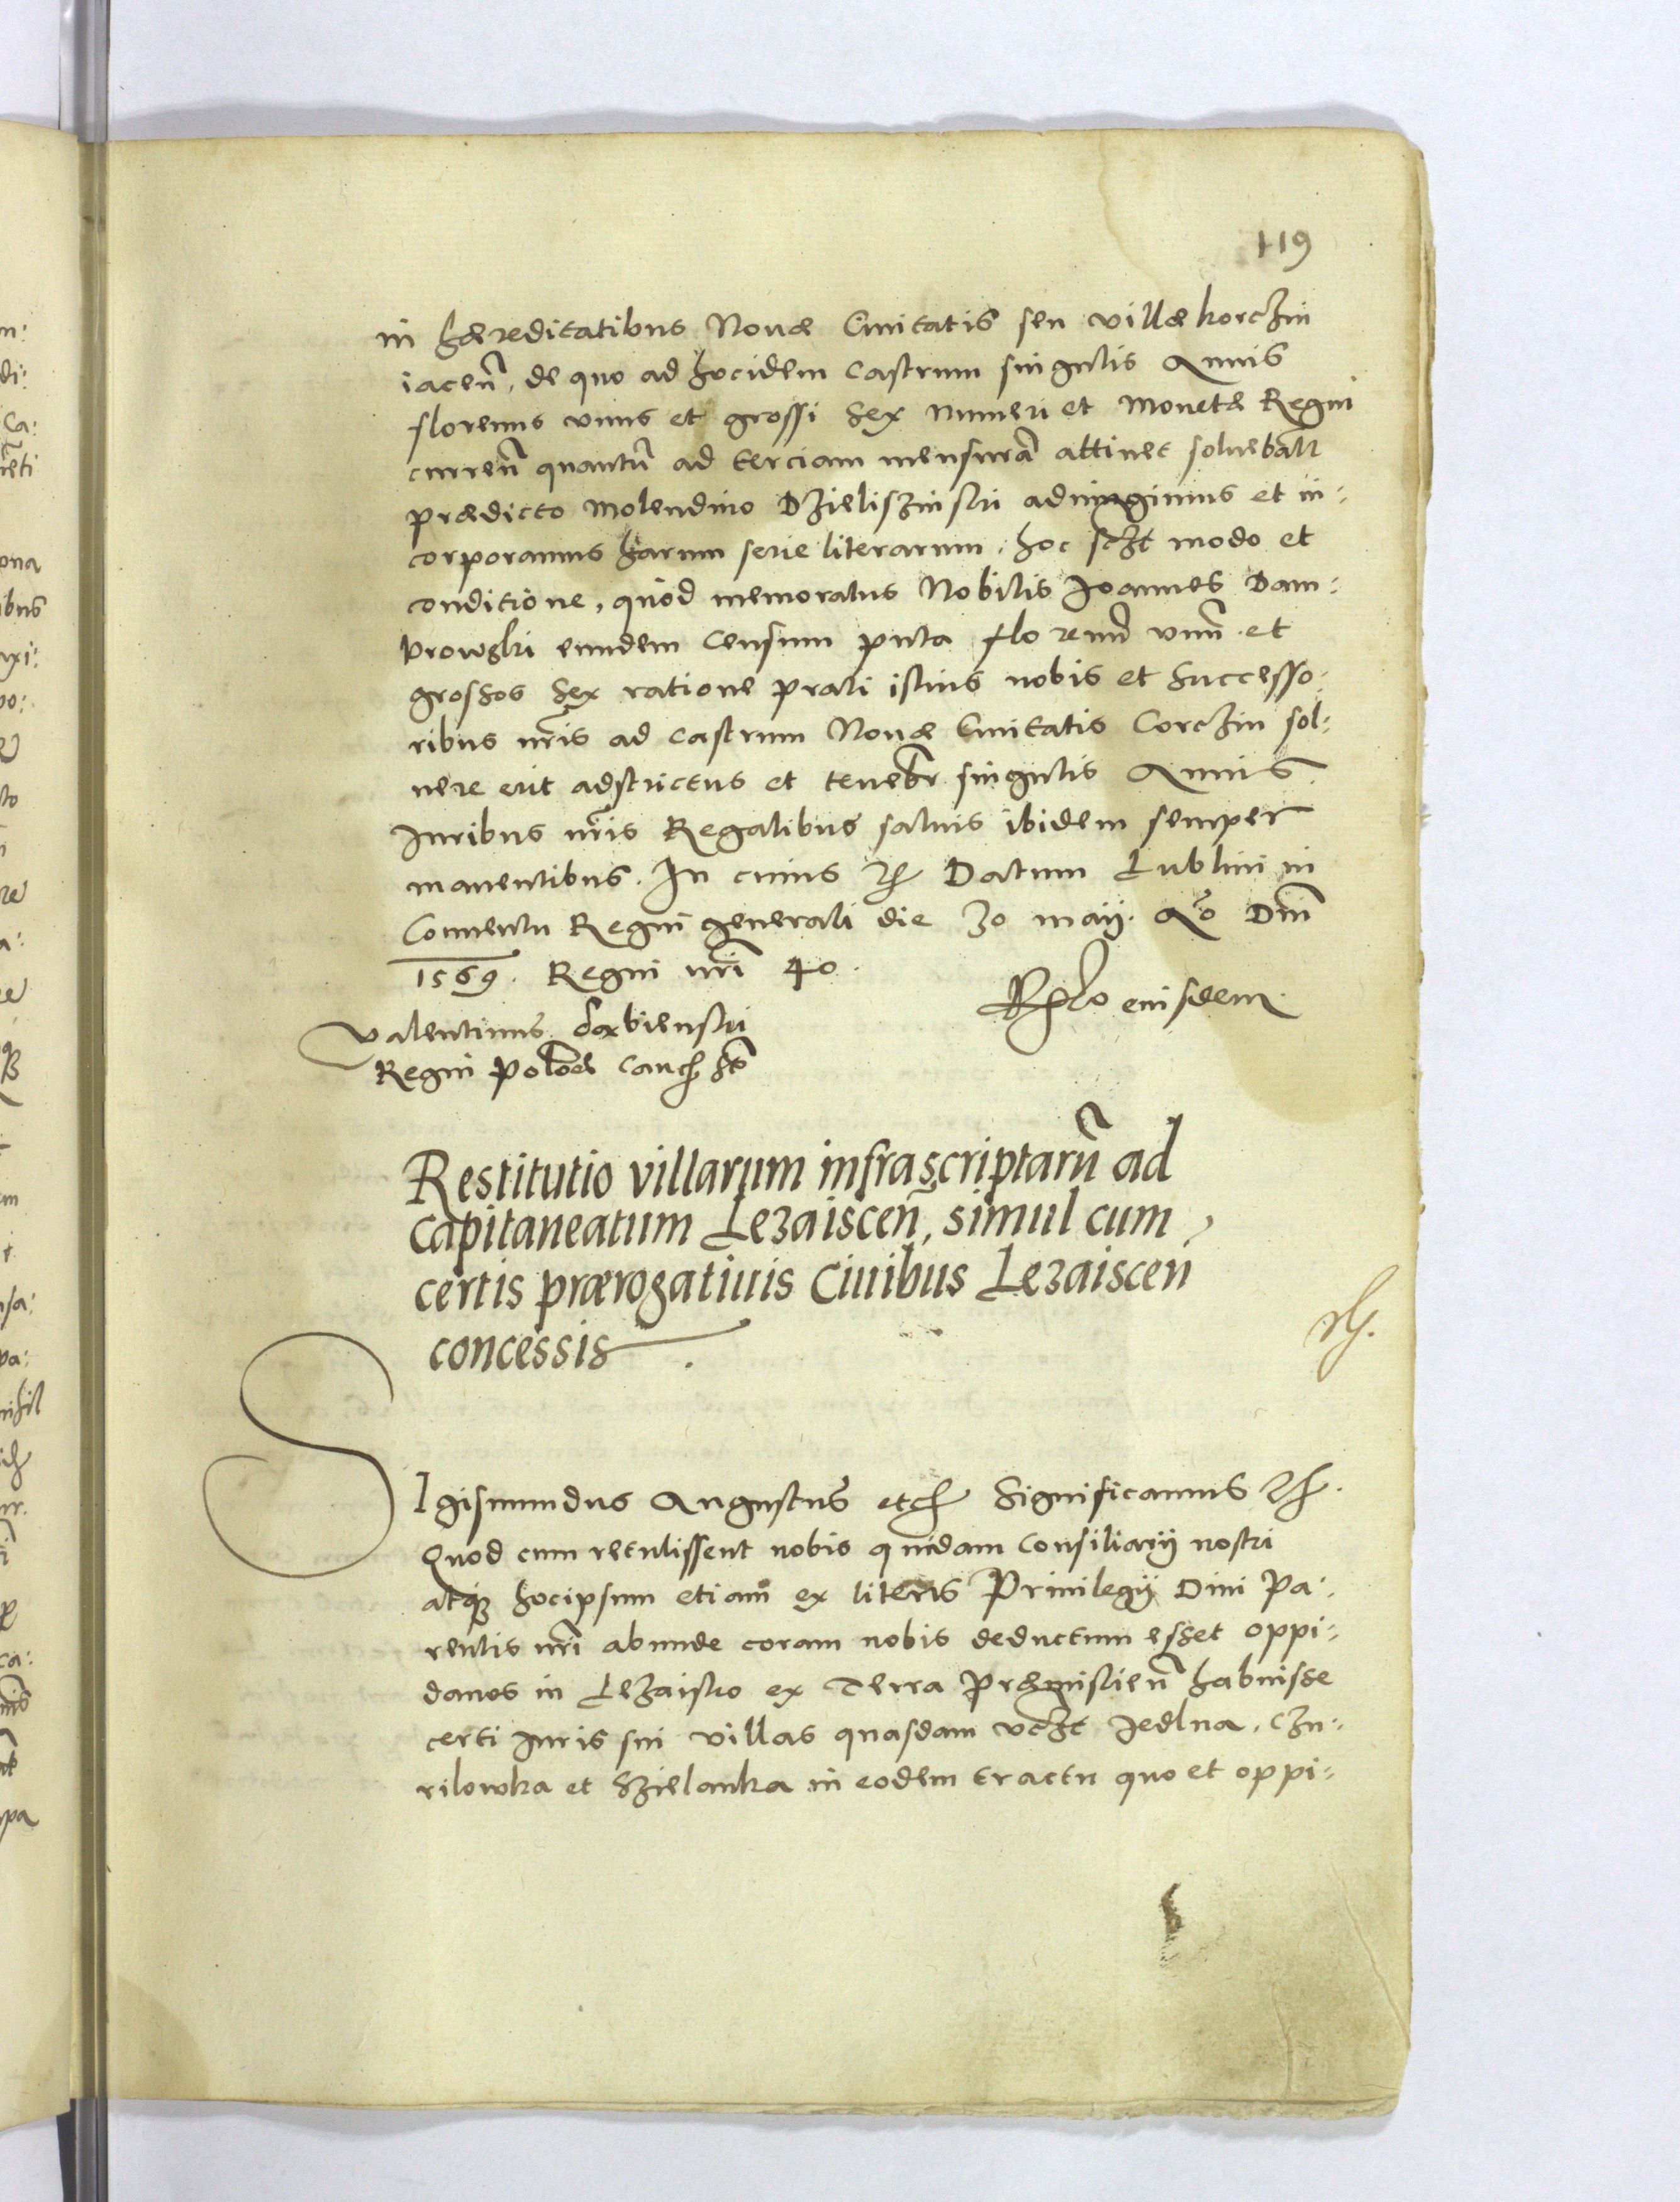 119
in hæreditatibus Nouæ Ciuitatis seu villæ korczin
iaceñ, de quo ad hocidem castrum singulis Annis
florenus vnus et grossi sex numeri et Monetæ Regni
curreñ quantũ ad terciam mensurã attinet soluebatr
prædicto Molendino Dzieliszinski adiungimus et in:
corporamus harum serie literarum. hoc sczt modo et
conditione, quod memoratus Nobilis Joannes Dam:
browski eundem Censum puta florenũ vnũ et
grossos sex ratione prati istius nobis et Successo:
ribus nr̃is ad castrum Nouæ Ciuitatis Corczin sol:
uere erit adstrictus et tenebr singulis Annis.
Iuribus nr̃is Regalibus saluis ibidem semper
manentibus. In cuius rei Datum Lublini in
Conuentu Regni generali die 30 maij. Ao Dni
1569. Regni nr̃i 40.
Valentinus Dębienski
Regni Poloæ Canc. sst
Rlo eiusdem.
Restitutio villarum infrascriptarũ ad
capitaneatum Lezaisceñ, simul cum
certis prærogatiuis Ciuibus Lezaisceñ
concessis.
SIgismundus Augustus etc. Significamus etc.
Quod cum retulissent nobis quidam Consiliarij nostri
atq; hocipsum etiam ex literis Priuilegij Diui Pa:
rentis nr̃i abunde coram nobis deductum esset oppi:
danos in Lezaisko ex Terra Præmislieñ habuisse
certi Iuris sui villas quasdam vtzt Jedlna, Czu:
rilowka et Szielanka in eodem tractu quo et oppi: